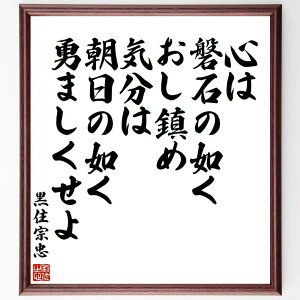 心は
磐石の如く
おし鎮め
気分は
朝日の如く
勇ましくせよ
黒住宗忠